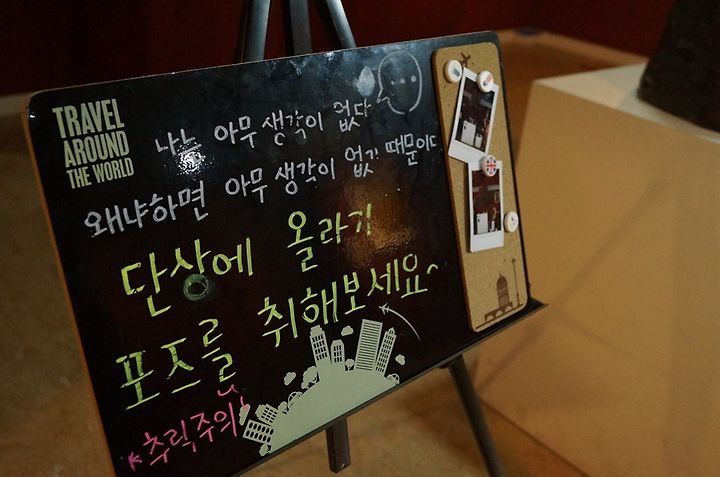 TRAVEL
AROUND
THE WORLD
나는 아무 생각이 없다~
왜냐하면 아무 생각이 없기 때문이다
단상에 올라가
포즈를 취해보세요~
*추락주의!